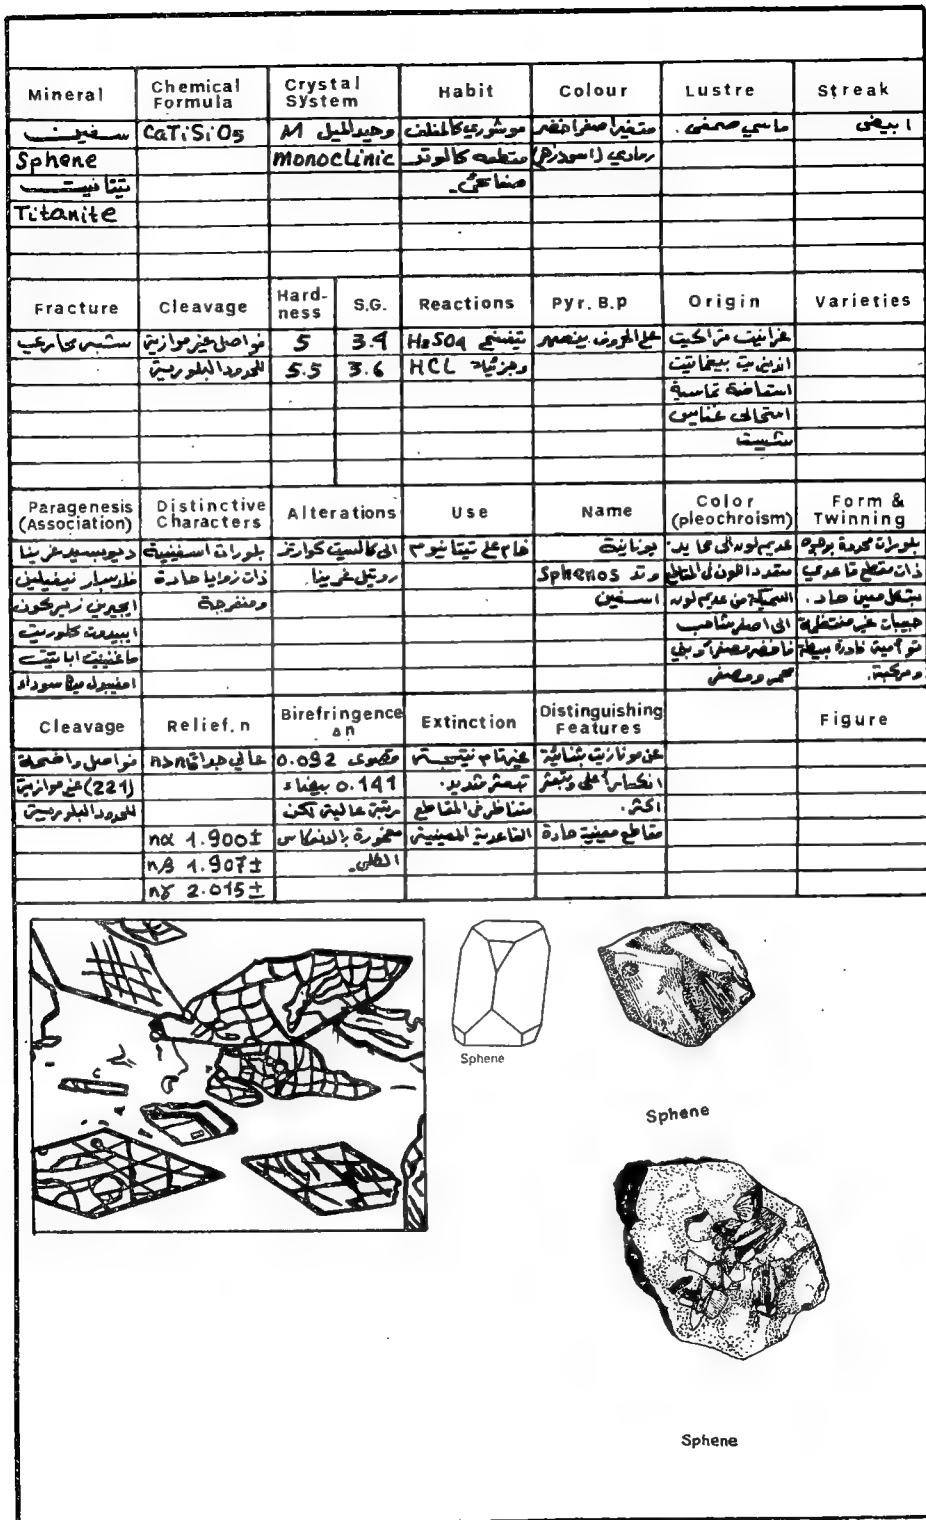 Mineral Chemical Formula Crystal System Habit Colour Lustre Streak
سفين CaTiSiO5 وحيد الميل M موشوري كالمغلف متغير اصفر اخضر ماسي صمغي . ابيض
Sphene monoclinic متطعه كالوتد رمادي (اسود زهر)
تيتانيت صفائحي.
Titanite
Fracture Cleavage Hardness S.G. Reactions Pyr. B.p Origin Varieties
شبه محاري فواصل غير موازية 5 3.4 H2SO4 يتفسخ على الحروف ينصهر غرانيت تراكيت
للحدود البلورية 5.5 3.6 HCL وجزئياً بيغماتيت
تماسية
شيست
Paragenesis (Association) Distinctive Characters Alterations Use Name Color (pleochroism) Form & Twinning
ديوبسيد غرينا بلورات اسفينية الى كالسيت كوارتز خام على تيتانيوم يونانية عديم لون الى بلورات محددة بوجوه
فلدسبار نيفيلين ذات زوايا حادة روتيل غرينا. Sphenos وتد متعدد اللون في ذات مقطع قاعدي
ايجيرين زيركون ومنفرجة اسفين السميكة من عديم لون بشكل معين حاد .
ابيدوت كلوريت الى اصفر شاحب حبيبات غير منتظمة
ماغنيتيت اباتيت توأمية نادرة بسيطة
امفيبول ميكا سوداء ومركبة.
Cleavage Relief. n Birefringence Δn Extinction Distinguishing Features Figure
فواصل واضحة عالي جداً 0.092 قصوى غير تام نتيجة عن مونازيت بثنائية
(221) غير موازية 0.141 تبعثر شديد. انكسار أعلى وتبعثر
للحدود البلورية رتبة عالية تكن متناظر في المقاطع اكثر.
nα 1.900± مغمورة بالانعكاس القاعدية المعينية مقاطع معينية حادة
nβ 1.907± الكلي.
nγ 2.015±
Sphene
Sphene
Sphene